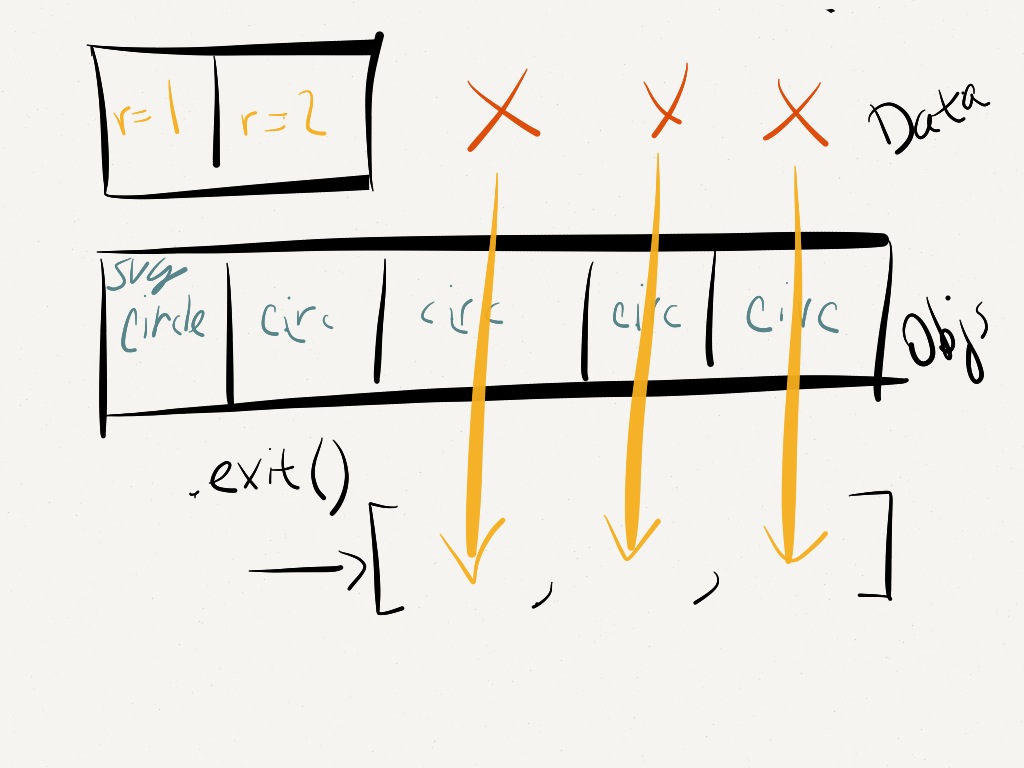 r=1 r=2 X X X Data
svg
circle circ circ circ circ Objs
.exit()
→ [ , , ]